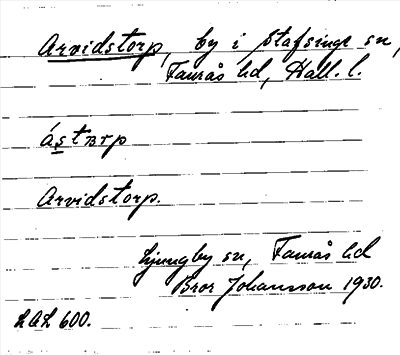 Arvidstorp, by i Stafsinge sn,
Faurås hd, Hall. l.
ástʙrp
Arvidstorp.
Ljungby sn, Faurås hd
Bror Johansson 1930.
LAL 600.